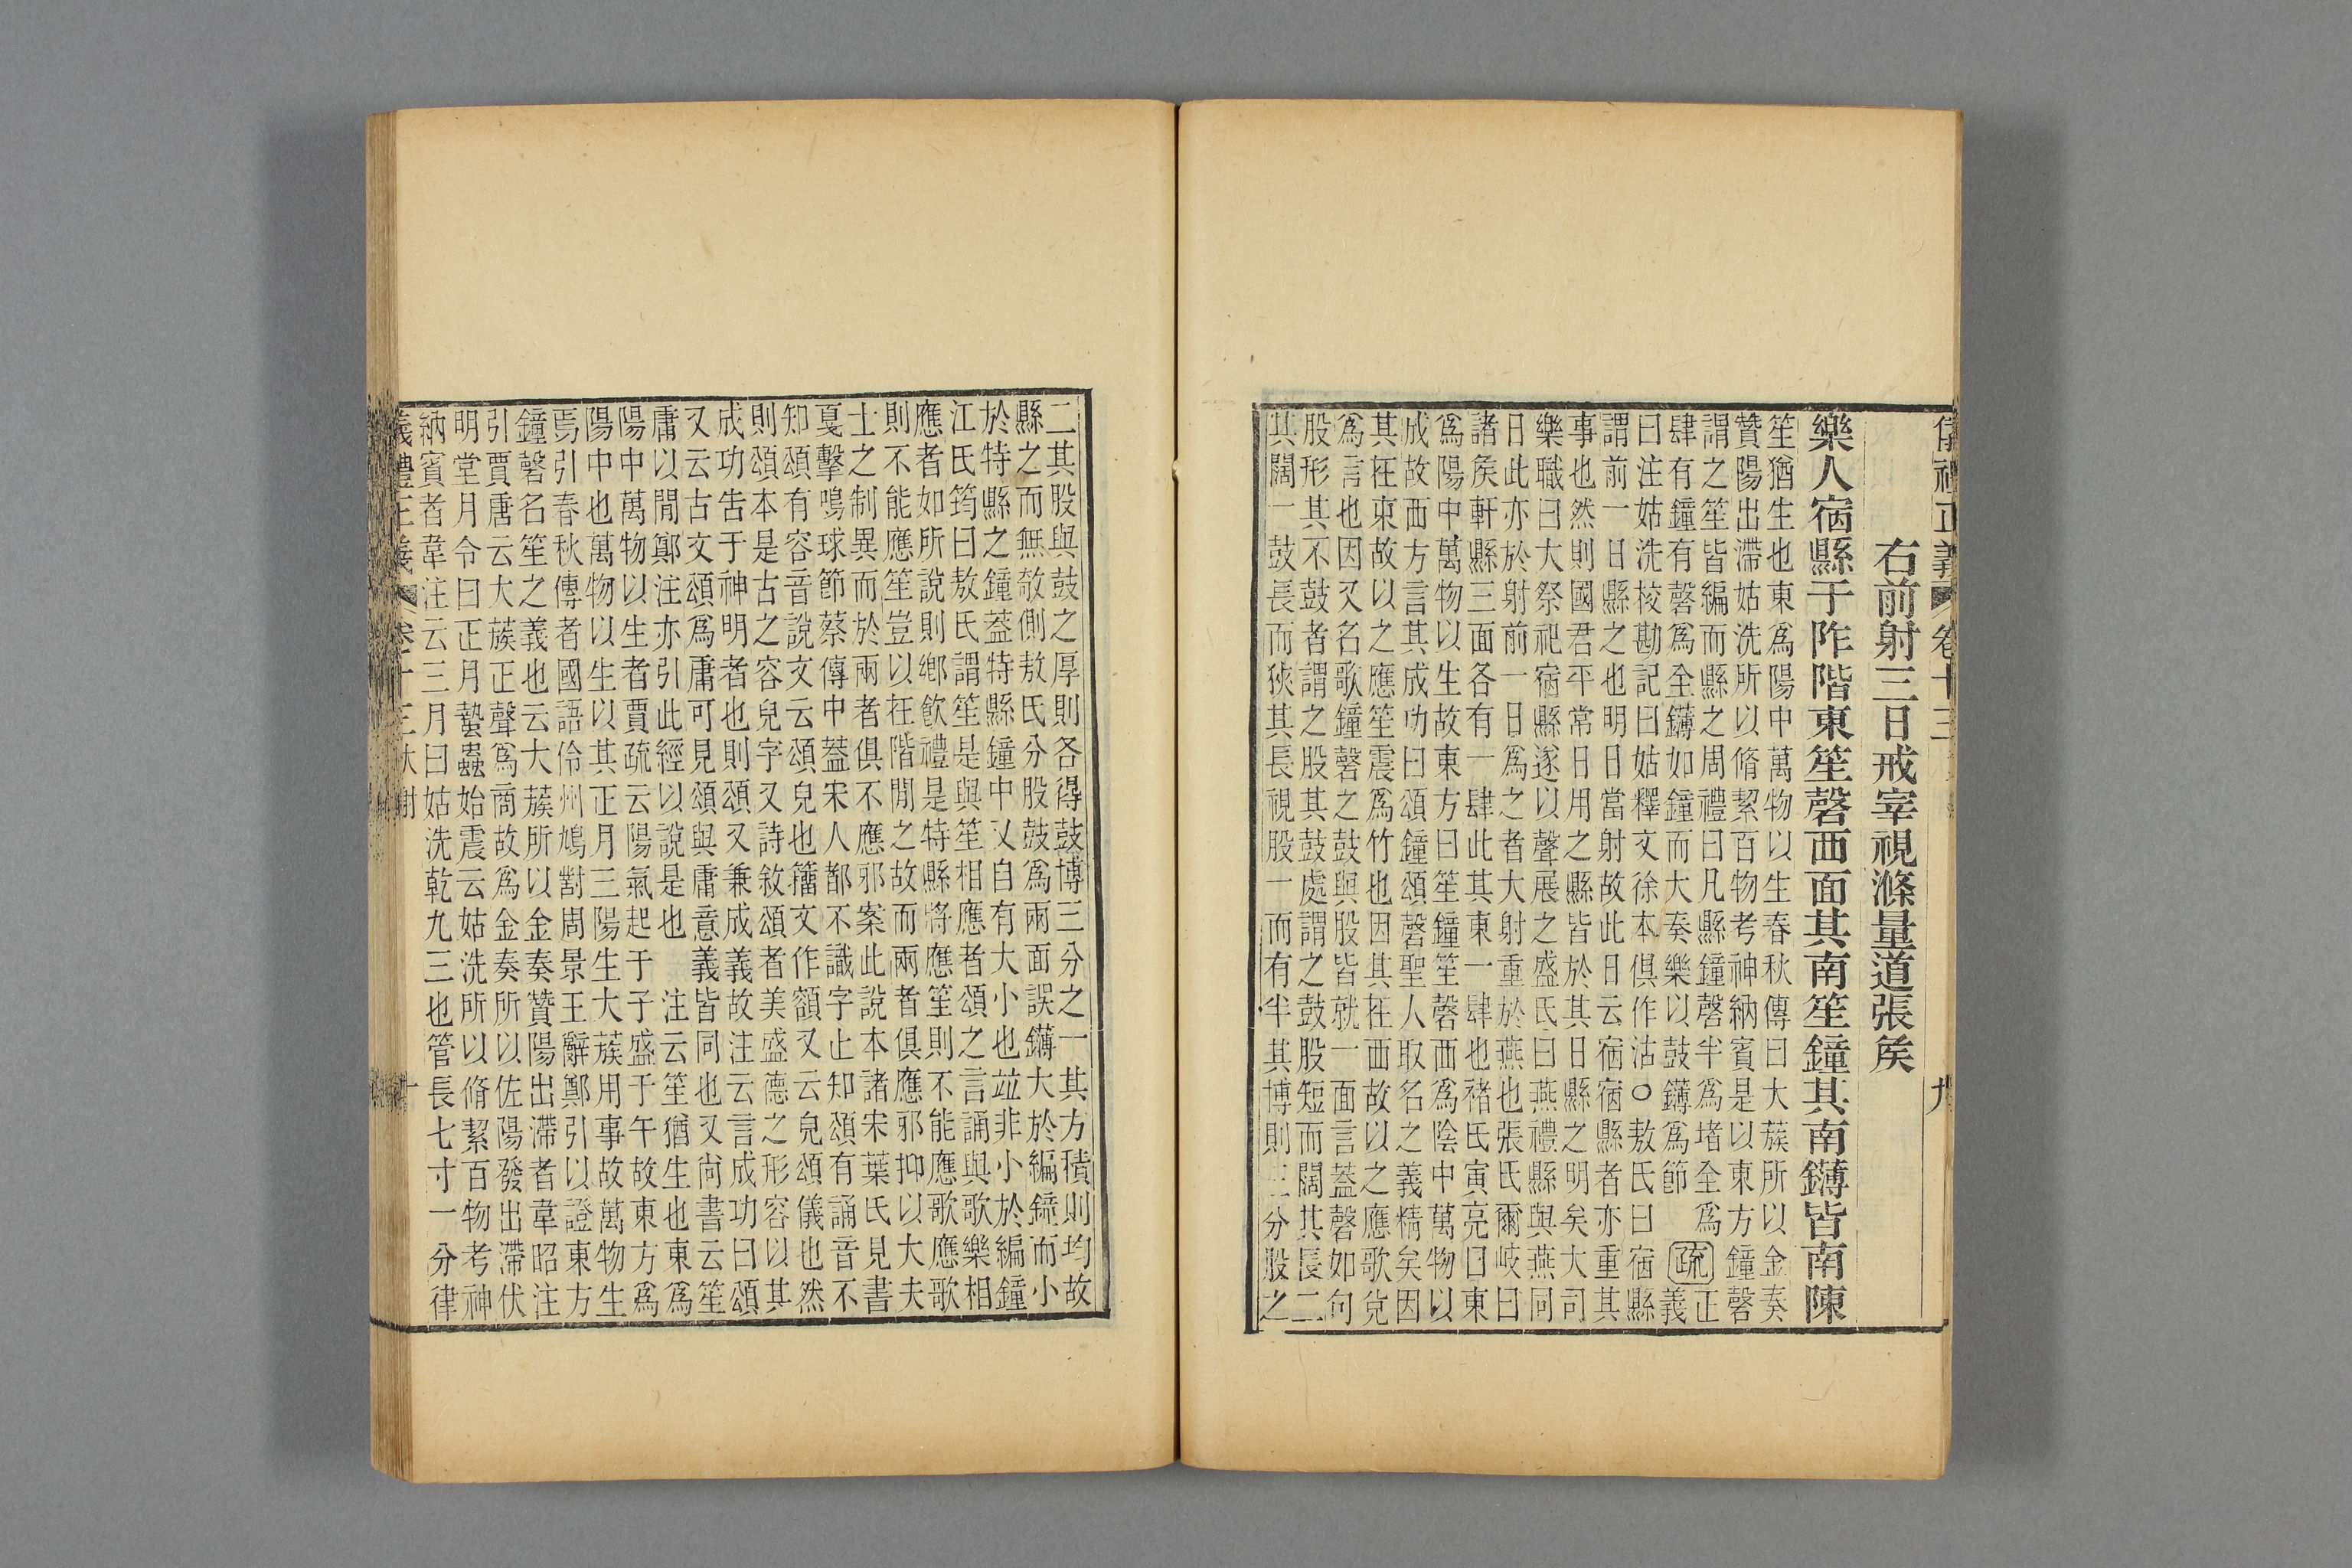 儀禮正義 卷十三 九
右前射三日戒宰視滌量道張矦
樂人宿縣于阼階東笙磬西面其南笙鐘其南鑮皆南陳
笙猶生也東爲陽中萬物以生春秋傳曰大蔟所以金奏
贊陽出滯姑洗所以脩絜百物考神納賓是以東方鐘磬
謂之笙皆編而縣之周禮曰凡縣鐘磬半爲堵全爲
肆有鐘有磬爲全鑮如鐘而大奏樂以鼓鑮爲節 疏 正義
曰注姑洗校勘記曰姑釋文徐本俱作沽○敖氏曰宿縣
謂前一日縣之也明日當射故此日云宿宿縣者亦重其
事也然則國君平常日用之縣皆於其日縣之明矣大司
樂職曰大祭祀宿縣遂以聲展之盛氏曰燕禮縣與燕同
日此亦於射前一日爲之者大射重於燕也張氏爾岐曰
諸矦軒縣三面各有一肆此其東一肆也褚氏寅亮曰東
爲陽中萬物以生故東方曰笙鐘笙磬西爲陰中萬物以
成故西方言其成功曰頌鐘頌磬聖人取名之義精矣因
其在東故以之應笙震爲竹也因其在西故以之應歌兌
爲言也因又名歌鐘磬之鼓與股皆就一面言蓋磬如句
股形其不鼓者謂之股其鼓處謂之鼓股短而闊其長二
其闊一鼓長而狹其長視股一而有半其博則三分股之
二其股與鼓之厚則各得鼓博三分之一其方積則均故
縣之而無欹側敖氏分股鼓爲兩面誤鑮大於編鐘而小
於特縣之鐘蓋特縣鐘中又自有大小也竝非小於編鐘
江氏筠曰敖氏謂笙是與笙相應者頌之言誦與歌樂相
應者如所說則鄉飲禮是特縣將應笙則不能應歌應歌
則不能應笙豈以在階閒之故而兩者俱應邪抑以大夫
士之制異而於兩者俱不應邪案此說本諸宋葉氏見書
戛擊鳴球節蔡傳中蓋宋人都不識字止知頌有誦音不
知頌有容音說文云頌皃也籒文作額又云皃頌儀也然
則頌本是古之容皃字又詩敘頌者美盛德之形容以其
成功告于神明者也則頌又兼成義故注云言成功曰頌
又云古文頌爲庸可見頌與庸意義皆同也又尚書云笙
庸以閒鄭注亦引此經以說是也 注云笙猶生也東爲
陽中萬物以生者賈疏云陽氣起于子盛于午故東方爲
陽中也萬物以生以其正月三陽生大蔟用事故萬物生
焉引春秋傳者國語伶州鳩對周景王辭鄭引以證東方
鐘磬名笙之義也云大蔟所以金奏贊陽出滯者韋昭注
引賈唐云大蔟正聲爲商故爲金奏所以佐陽發出滯伏
明堂月令曰正月蟄蟲始震云姑洗所以脩絜百物考神
納賓者韋注云三月曰姑洗乾九三也管長七寸一分律
儀禮正義 卷十三 大射 十